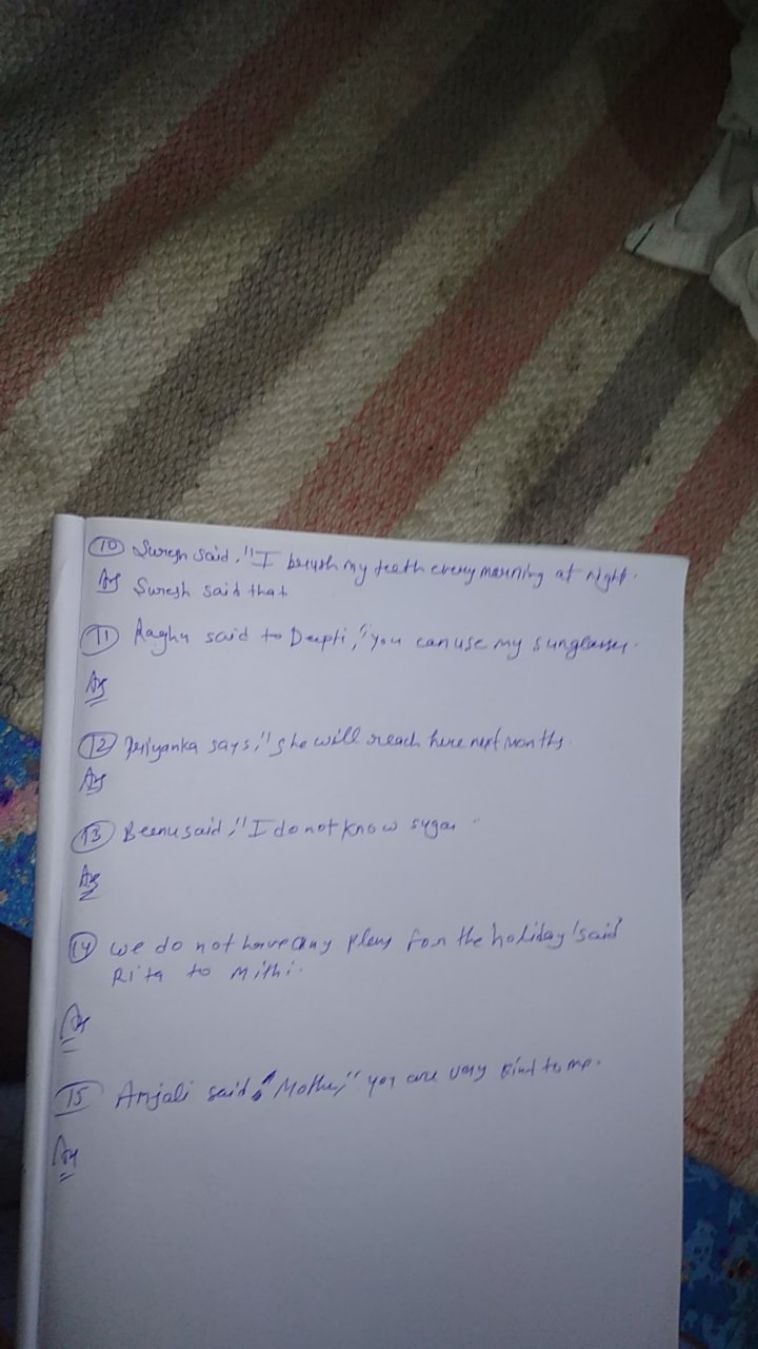 10 Suresh said, "I brush my teeth every morning at night.
As Suresh said that
11 Raghu said to Deepti, "you can use my sunglasses.
As
12 Priyanka says, "she will reach here next months.
As
13 Beenu said, "I do not know sugar"
As
14 we do not have any plans for the holiday 'said'
Rita to Mithi.
As
15 Anjali said, "Mother," you are very kind to me.
As